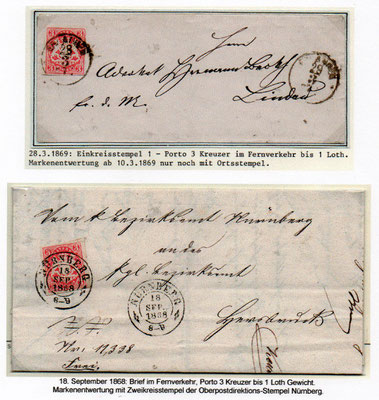 28
3
Herrn
Advokat Hermann Beckh
Lindau
fr. d. M.
28.3.1869: Einkreisstempel 1 - Porto 3 Kreuzer im Fernverkehr bis 1 Loth.
Markenentwertung ab 10.3.1869 nur noch mit Ortsstempel.
Vom k. Bezirksamt Nürnberg
an das
Kgl. Bezirksamt
Hersbruck
NÜRNBERG
18
SEP.
1868
8-9
NÜRNBERG
18
SEP.
1868
8-9
Nr. 11,338
Frei.
18. September 1868: Brief im Fernverkehr, Porto 3 Kreuzer bis 1 Loth Gewicht.
Markenentwertung mit Zweikreisstempel der Oberpostdirektions-Stempel Nürnberg.